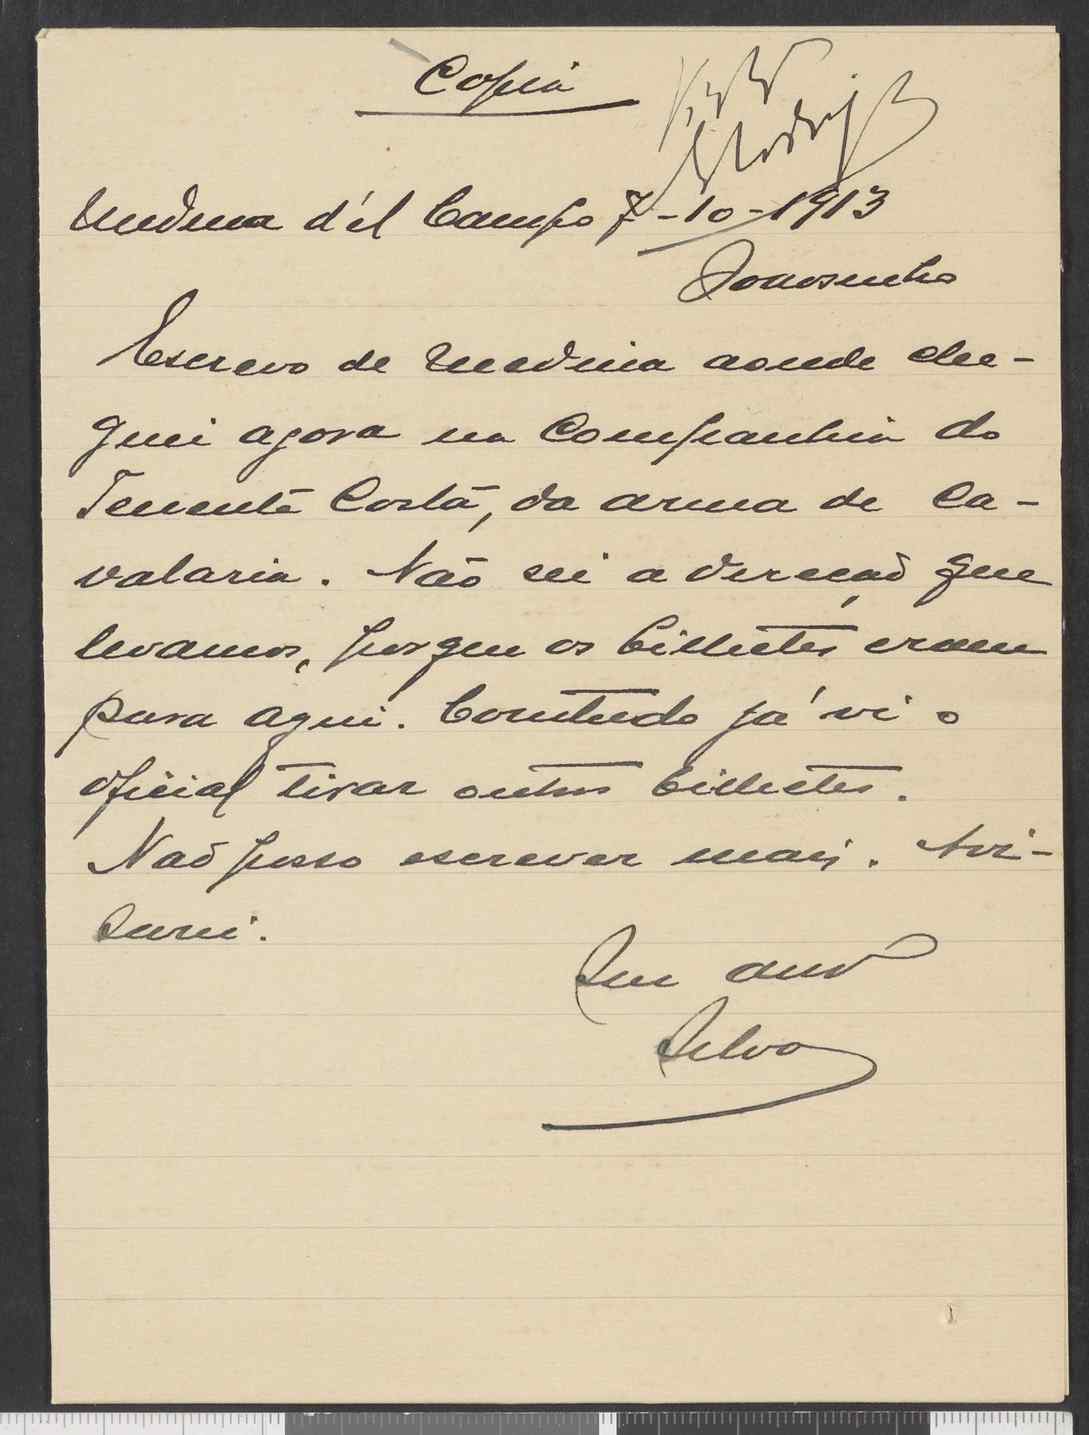 Copia
Medina d'él Campo 7-10-1913
Joãosinho
Escrevo de Medina aonde che-
guei agora na Companhia do
Tenente Costa, da arma de Ca-
valaria. Não sei a direcção que
levamos, porque os bilhetes eram
para aqui. Comtudo já vi o
oficial tirar outros bilhetes.
Não posso escrever mais. Avi-
sarei.
Seu amº
Silva